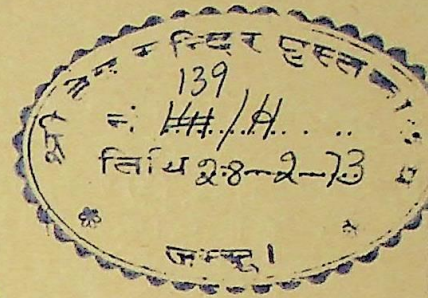 मन्दिर पुस्तकालय
139
नं.
तिथि 28-2-73
जम्मू।